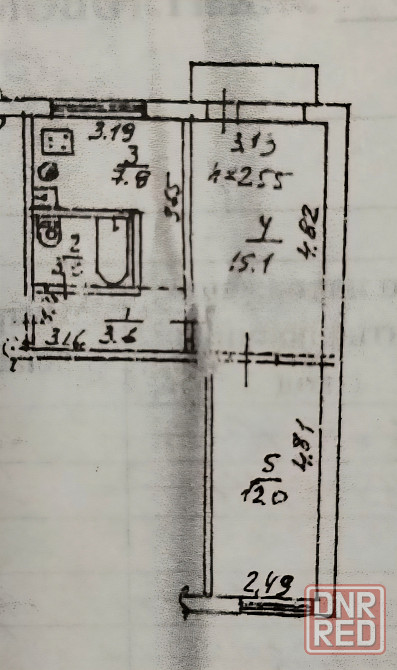 3.19
3
7.8
3.13
h=2.55
3.65
4
15.1
4.82
2
1
3.6
3.16
5
12.0
4.81
2,49
DNR
RED